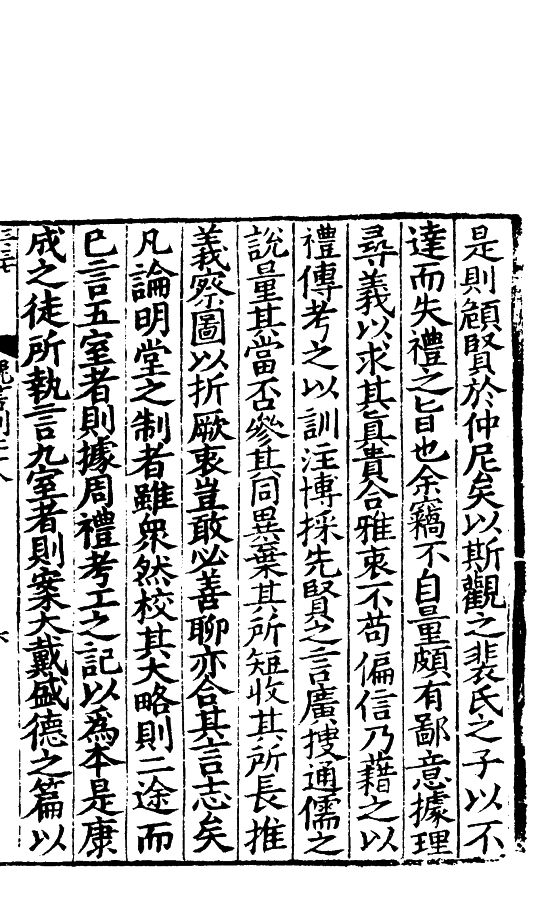 是則顧賢於仲尼矣以斯觀之裴氏之子以不
達而失禮之旨也余竊不自量頗有鄙意據理
尋義以求其真貴合雅衷不苟偏信乃藉之以
禮傳考之以訓注博採先賢之言廣搜通儒之
說量其當否參其同異棄其所短收其所長推
義察圖以折厥衷豈敢必善聊亦合其言志矣
凡論明堂之制者雖衆然校其大略則二途而
已言五室者則據周禮考工之記以爲本是康
成之徒所執言九室者則案大戴盛德之篇以